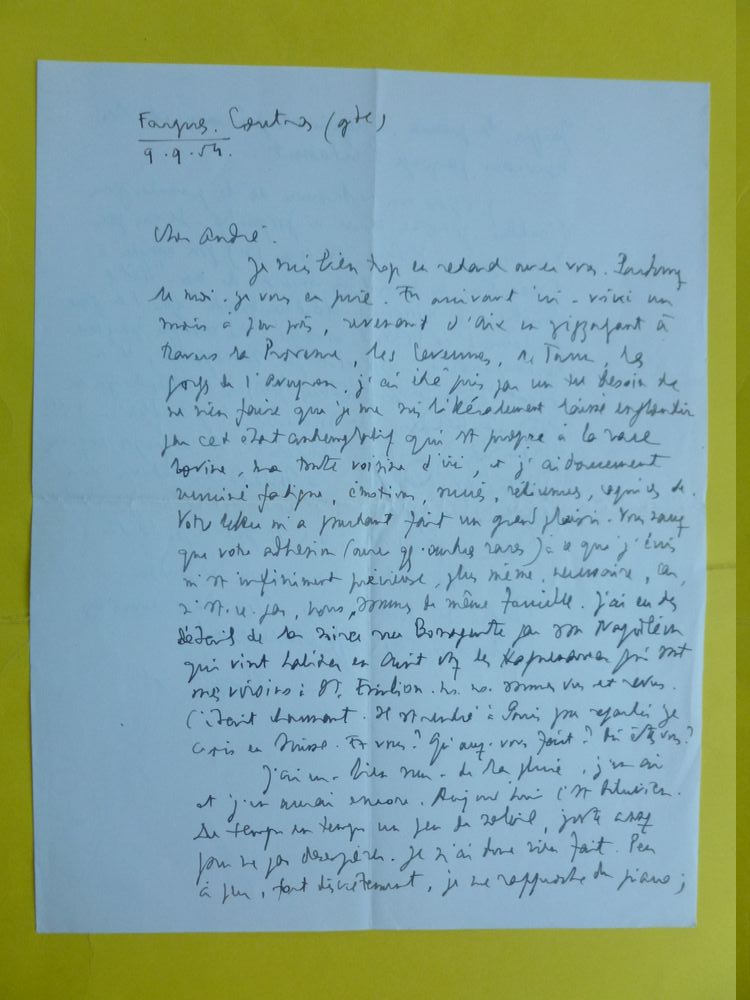 Fargues. Coutras (gde)
9.9.54.
Cher André.
Je suis bien trop en retard avec vous. Pardonnez
le moi. je vous en prie. En arrivant ici. voici un
mois à peu près, revenant d'Aix en zigzagant à
travers la Provence, les Cevennes, le Tarn, les
gorges de l'Aveyron, j'ai été pris par un tel besoin de
ne rien faire que je me suis littéralement laissé
par cet état contemplatif qui est propre à la race
bovine, ma toute voisine d'ici, et j'ai doucement
ruminé fatigue, émotions,
Votre lettre m'a pourtant fait un grand plaisir. Vous savez
que votre adhésion (avec qq. autres rares) à ce que j'écris
m'est infiniment précieuse, plus même, nécessaire, car,
n'est-ce pas, nous sommes de même famille. J'ai eu des
détails de la soirée rue Bonaparte par son Napoléon
qui vint habiter en Août chez les qui sont
mes voisins à St. Emilion. ns. ns. sommes vus et revus.
C'était charmant. Il est rentré à Paris pour repartir je
crois en Suisse. Et vous? Qu'avez-vous fait? Où êtes vous?
J'ai eu - bien sûr - de la pluie, j'en ai
et j'en aurai encore. Aujourd'hui c'est diluvien.
De temps en temps un peu de soleil, juste assez
pour ne pas désespérer. Je n'ai donc rien fait. Peu
à peu, fort discrètement, je me rapproche du piano;